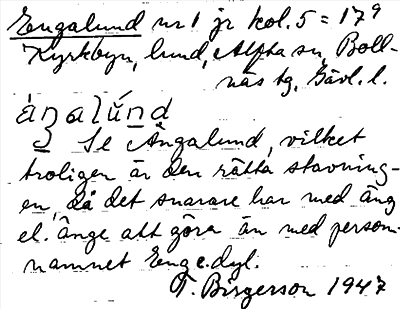 Engalund nr 1 jr kol. 5 = 17⁹
Kyrkbyn, lund, Alfta sn, Boll-
näs tg, Gävl. l.
áŋalúnd
Se Ångalund, vilket
troligen är den rätta stavning-
en, då det snarare har med äng
el. ånge att göra än med person-
namnet Enge. dyl.
T. Birgerson 1947